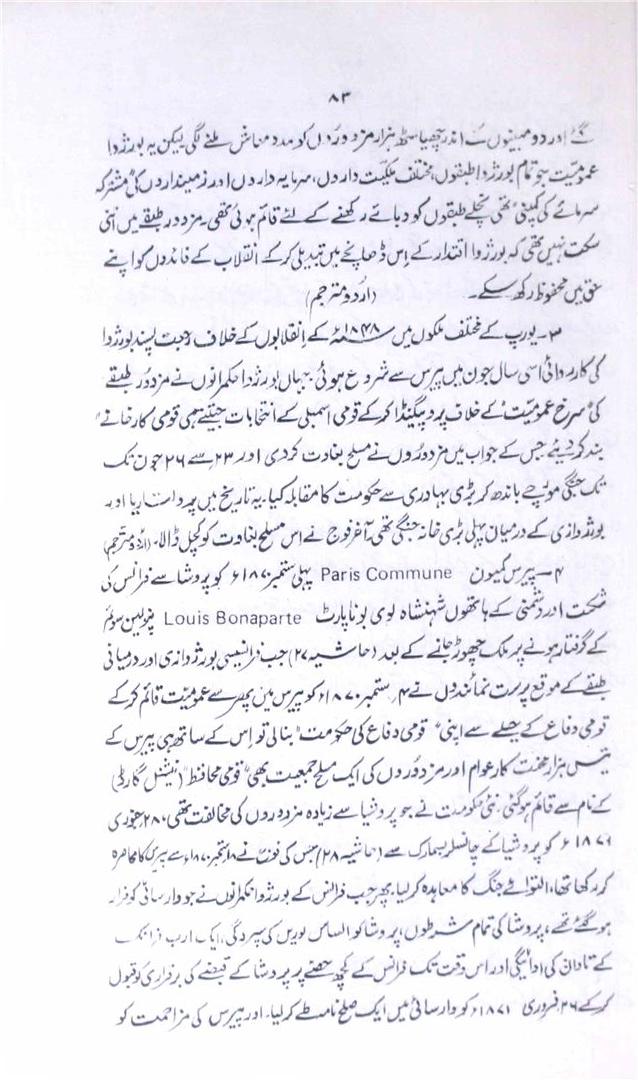 ۸۳
گئے اور دو مہینوں کے اندر چھیاسٹھ ہزار مزدوروں کو مدد معاش ملنے لگی لیکن یہ بورژوا
عمومیت جو تمام بورژوا طبقوں، مختلف ملکیت داروں، سرمایہ داروں اور زمینداروں کی "مشترکہ
سرمائے کی کمپنی" تھی نچلے طبقوں کو دبائے رکھنے کے لئے قائم ہوئی تھی۔ مزدور طبقے میں اتنی
سکت نہیں تھی کہ بورژوا اقتدار کے اس ڈھانچے میں تبدیلی کر کے انقلاب کے فائدوں کو اپنے
حق میں محفوظ رکھ سکے۔ (اردو مترجم)
۳۔ یورپ کے مختلف ملکوں میں ۱۸۴۸ء کے انقلابوں کے خلاف رجعت پسند بورژوا
کی کارروائی اسی سال جون میں پیرس سے شروع ہوئی، جہاں بورژوا حکمرانوں نے مزدور طبقے
کی "سرخ عمومیت" کے خلاف پروپیگنڈا کر کے قومی اسمبلی کے انتخابات جیتتے ہی قومی کارخانے
بند کر دیئے جس کے جواب میں مزدوروں نے مسلح بغاوت کر دی اور ۲۳ سے ۲۶ جون تک
تک جنگی مورچے باندھ کر بڑی بہادری سے حکومت کا مقابلہ کیا۔ یہ تاریخ میں پرولتاریا اور
بورژوازی کے درمیان پہلی بڑی خانہ جنگی تھی آخر فوج نے اس مسلح بغاوت کو کچل ڈالا۔ (اردو مترجم)
۴۔ پیرس کمیون Paris Commune پہلی ستمبر ۱۸۷۰ء کو پروشا سے فرانس کی
شکست اور دشمنی کے ہاتھوں شہنشاہ لوی بوناپارٹ Louis Bonaparte نپولین سوم
کے گرفتار ہونے پر ملک چھوڑ جانے کے بعد (حاشیہ ۲۷) جب فرانسیسی بورژوازی اور درمیانی
طبقے کے موقع پرست نمائندوں نے ۴ ستمبر ۱۸۷۰ء کو پیرس میں پھر سے عمومیت قائم کر کے
قومی دفاع کے حیلے سے اپنی "قومی دفاع کی حکومت" بنالی تو اس کے ساتھ ہی پیرس کے
ہزار محنت کار عوام اور مزدوروں کی ایک مسلح جمعیت بھی "قومی محافظ" (نیشنل گارڈ)
کے نام سے قائم ہو گئی۔ نئی حکومت نے جو پروشیا سے زیادہ مزدوروں کی مخالفت تھی، ۲۸ جنوری
۱۸۷۱ء کو پروشیا کے چانسلر بسمارک سے (حاشیہ ۲۸) جس کی فوج نے ۱۸ ستمبر ۱۸۷۰ء سے پیرس کا محاصرہ
کر رکھا تھا، التوائے جنگ کا معاہدہ کر لیا۔ پھر جب فرانس کے بورژوا حکمرانوں نے جو وارسائی کو فرار
ہو گئے تھے، پروشا کی تمام شرطوں، پروشا کو الساس لورین کی سپردگی، ایک ارب فرانک
کے تاوان کی ادائیگی اور اس وقت تک فرانس کے کچھ حصے پر پروشا کے قبضے کی برقراری کو قبول
کر کے ۲۶ فروری ۱۸۷۱ء کو وارسائی میں ایک صلح نامہ طے کر لیا۔ اور پیرس کی مزاحمت کو